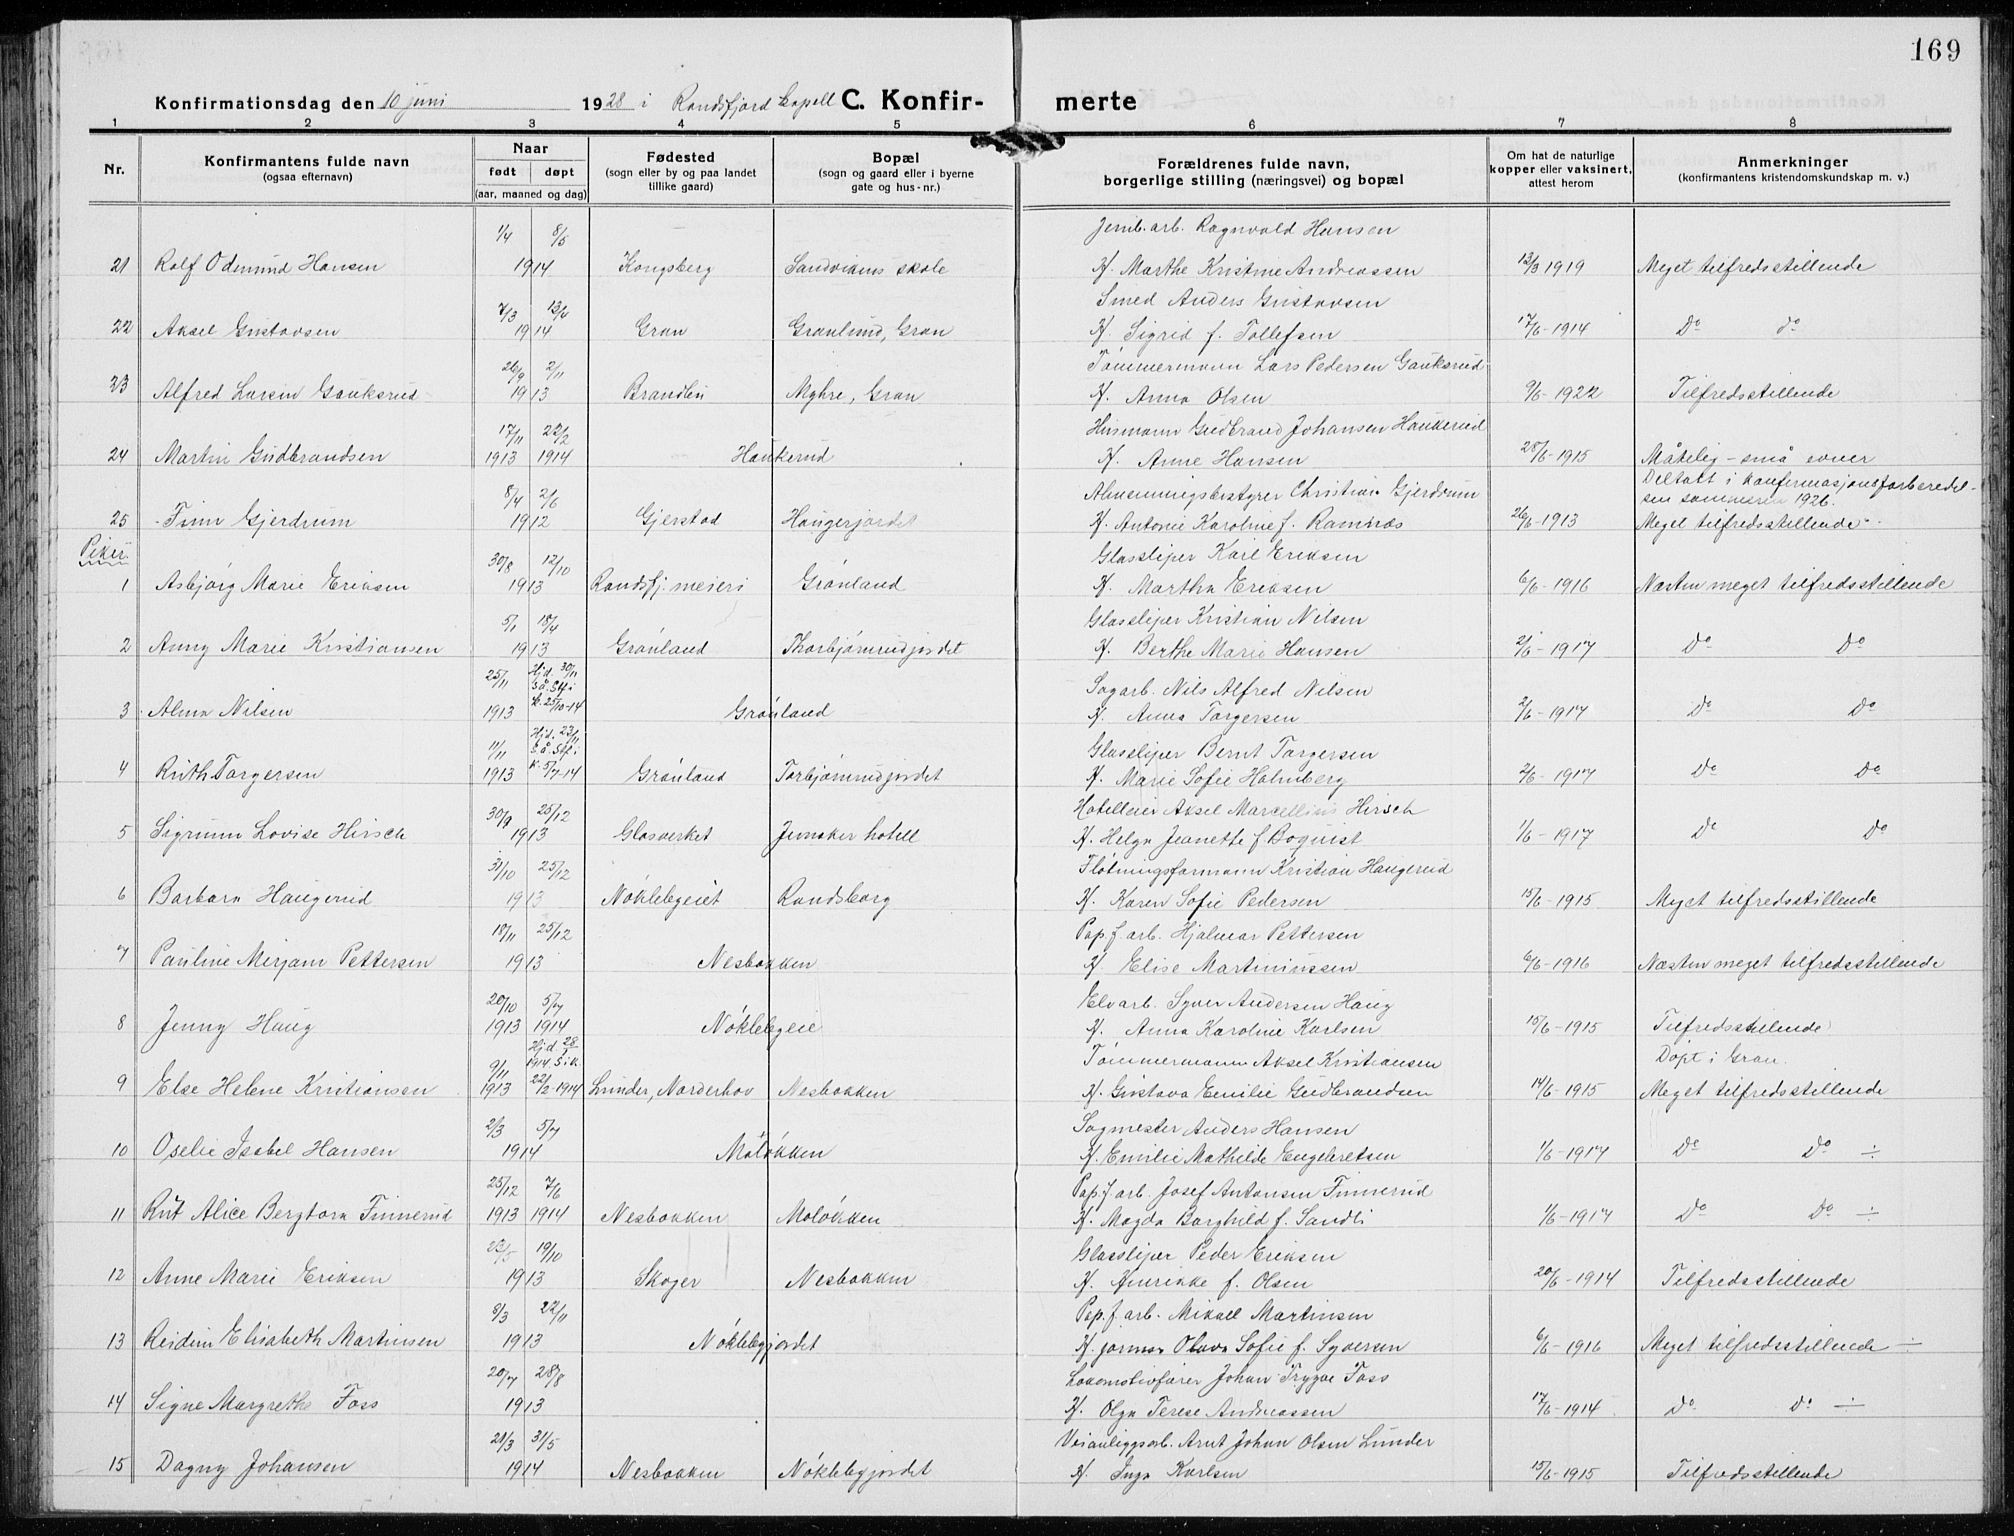 169
Konfirmationsdag den 10 juni 1928 i Randsfjord Capell C. Konfir- merte
1 2 3 4 5 6 7 8
Nr. Konfirmantens fulde navn (ogsaa efternavn) Naar født døpt (aar, maaned og dag) Fødested (sogn eller by og paa landet tillike gaard) Bopæl (sogn og gaard eller i byerne gate og hus-nr.) Forældrenes fulde navn, borgerlige stilling (næringsvei) og bopæl Om hat de naturlige kopper eller vaksinert, attest herom Anmerkninger (konfirmantens kristendomskundskap m. v.)
1/4 8/5 Jernb.arb. Ragnvald Hansen
21 Rolf Odmund Hansen 1914 Kongsberg Sandvikens skole H. Marthe Kristine Andreassen 13/3 1919 Meget tilfredsstillende
7/3 13/4 Smed Anders Gustavsen
22 Aksel Gustavsen 1914 Gran Granlund, Gran H. Sigrid f. Tollefsen 17/6-1914 Do do
26/9 2/11 Tømmermann Lars Pedersen Gauksrud
23 Alfred Larsen Gauksrud 1913 Brandbu Myhre, Gran H. Anna Olsen 9/6-1922 Tilfredsstillende
17/11 22/2 Husmann Gudbrand Johansen Haukerud
24 Martin Gudbrandsen 1913 1914 Haukerud H. Anne Hansen 28/6-1915 Måtelig - små evner
8/4 2/6 Almenningsbestyrer Christian Gjerdrum Deltatt i konfirmasjonsforberedelsen sommeren 1926.
25 Finn Gjerdrum 1912 Gjerstad Haugerjordet H. Antonie Karoline f. Ramnæs 26/6-1913 Meget tilfredsstillende
Piker
30/8 12/10 Glassliper Karl Eriksen
1 Asbjørg Marie Eriksen 1913 Randsfj. meieri Grønland H. Martha Eriksen 6/6-1916 Næsten meget tilfredsstillende
5/1 18/4 Glassliper Kristian Nilsen
2 Anny Marie Kristiansen 1913 Grønland Thorbjørnrudjordet H. Berthe Marie Hansen 2/6-1917 Do Do
25/11 Hjd. 30/11 s.å. Stf. i Sagarb. Nils Alfred Nilsen
3 Alma Nilsen 1913 k. 25/10-14 Grønland H. Anna Torgersen 2/6-1917 Do Do
11/11 Hjd. 23/11 s.å. Stf. i Glassliper Bernt Torgersen
4 Ruth Torgersen 1913 k. 5/7-14 Grønland Torbjørnrudjordet H. Marie Sofie Holmberg 2/6-1917 Do Do
30/9 25/12 Hotelleier Aksel Marcellius Hirsch
5 Sigrunn Lovise Hirsch 1913 Glasverket Jernaker hotell H. Helga Jeanette f. Boquist 1/6-1917 Do Do
31/10 25/12 Fløtningsformann Kristian Haugerud
6 Barbara Haugerud 1913 Nøklebyeiet Randsborg H. Karen Sofie Pedersen 15/6-1915 Meget tilfredsstillende
18/11 25/12 Pap.f.arb. Hjalmar Pettersen
7 Pauline Mirjam Pettersen 1913 Nesbakken H. Elise Martiniussen 6/6-1916 Næsten meget tilfredsstillende
20/10 5/7 Elvarb. Syver Andersen Haug
8 Jenny Haug 1913 1914 Nøklebyeie H. Anna Karoline Karlsen 15/6-1915 Tilfredsstillende
9/11 Hjd. 28/1 1914 S. i k. Tømmermann Aksel Kristiansen Døpt i Gran.
9 Else Helene Kristiansen 1913 22/2-1914 Lunder, Norderhov Nesbakken H. Gustava Emilie Gudbrandsen 14/6-1915 Meget tilfredsstillende
2/3 5/7 Sagmester Anders Hansen
10 Oselie Isabel Hansen 1914 Moløkken H. Emilie Mathilde Engebretsen 1/6-1917 Do Do ÷
25/12 7/6 Pap.f.arb. Josef Antonsen Finnerud
11 Rut Alice Bergtora Finnerud 1913 1914 Nesbakken Moløkken H. Magda Borghild f. Sandli 1/6-1917 Do Do ÷
23/5 19/10 Glassliper Peder Eriksen
12 Anne Marie Eriksen 1913 Skoger Nesbakken H. Henrikke f. Olsen 20/6-1914 Tilfredsstillende
8/3 22/11 Pap.f.arb. Mikael Martinsen
13 Reidun Elisabeth Martinsen 1913 Nøklebyjordet H. Olava Sofie f. Syversen 6/6-1916 Meget tilfredsstillende ÷
20/7 28/8 Lokomotivfører Johan Trygve Foss
14 Signe Margrethe Foss 1913 H. Olga Terese Andreassen 17/6-1914 Do Do ÷
21/3 31/5 Veianliggsarb. Arnt Johan Olsen Lunder
15 Dagny Johansen 1914 Nesbakken Nøklebyjordet H. Inga Karlsen 15/6-1915 Tilfredsstillende